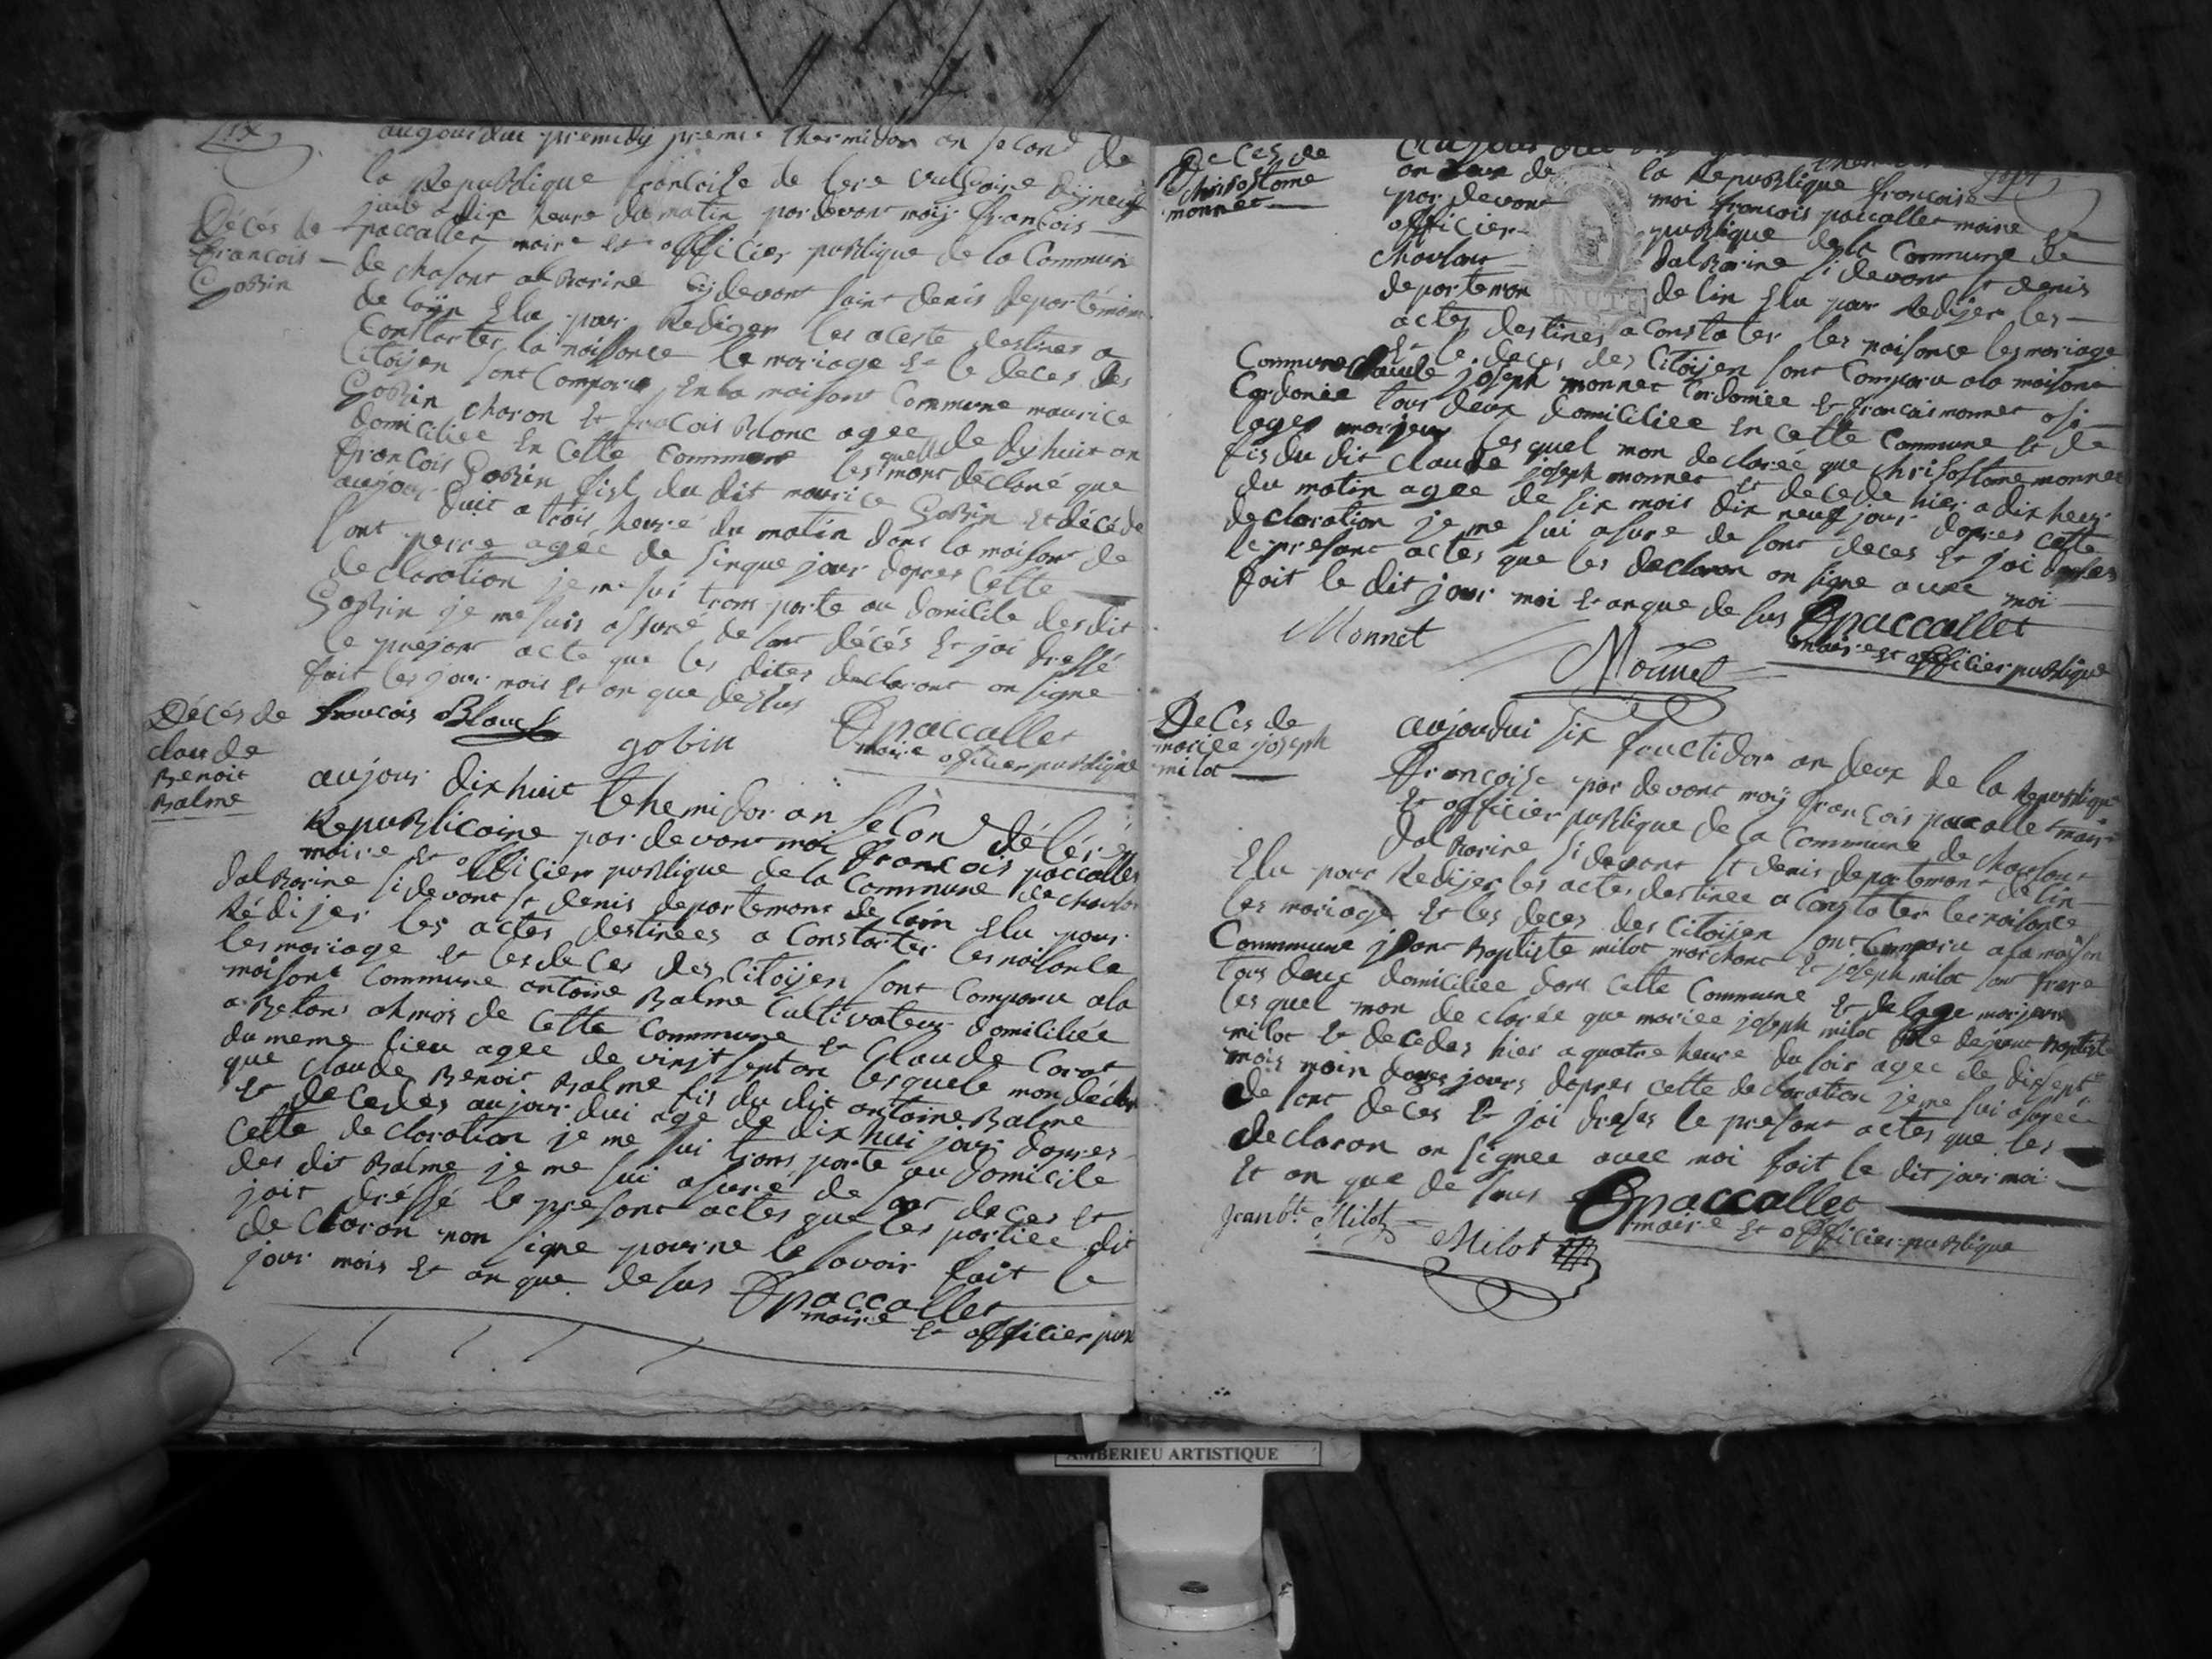 six
aujourdui premidy premie Thermidor an second de
la Republique francoise de lere vulgaire dijneuf
juile a dix heure du matin par devant moij francois
paccallet maire et officier publique de la Commun
de chasont albarine Cy devant saint denis departemon
de loin Elu pour Rediger les aceste destines a
Constarter la naissonce le mariage et le deces des
Citoijen sont Comparu En la maisont Commune maurice
Gobin charon et francois Blanc agee de dijhuit an
domiciliee En cette Commune lesquell mont declaré que
francois Gobin fist du dit maurice Gobin et décéde
aujour duit a trois heure du matin dans la maisont de
sont perre agée de sinque jour dapres Cette
declaration je me sui transporte au domicile desdit
Gobin je me suis assuré de sont décés et jai dressé
le presont acte que les dites declaront on signe
fait les jour mois et an que dessus
Décés de
francois
Gobin
francois Blanc
gobin
paccallet
maire officier publique
Décés de
claude
Benoit
Balme
aujour dixhuit thermidor an second de lére
Republicaine par devant moi francois paccallet
maire et officier publique de la Commune de chaulon
dalbarine si devant st denis departemont de loin Elu pour
Rédijer les actes destinees a Constarter les naisonce
les mariage et les deces des Citoijen sont Comparu ala
maisont Commune antoine Balme Cultivateur domiciliée
a Betans de Cette Commune et Claude Corat
du meme lieu agee de vingt sept an lesquele mon déclar
que Claude Benoit Balme fis du dit antoine Balme
et decedes aujour dui age de dix hui jour dapres
cette declaration je me sui transporte au domicile
des dit Balme je me sui asuré de sont deces et
jait dréssé le presont actes que les partiee dit
decloron non signe pour ne le savoir fait le
jour mois et an que desus
paccallet
maire et officier pub
Deces de
chrisostome
monnet
an deux de la Republique francoise
par devant moi francois paccallet maire et
officier publique de la Commune de
chaulont dalbarine si devant st denis
departemon de lin Elu pour Redijer les
actes destines a Constater les naisonce les mariage
et le deces des Citoijen sont Comparu ala maisont
Commune Claude joseph monnet Cordoniee et francois monnet osi
Cordoniee tous deux domiciliee En cette Commune et de
lages marjeur lesquel mon declaréé que chrisostome monnet
fis du dit Claude joseph monnet et decede hier a dix heur
du matin agee de six mois dix neuf jour dapres cette
declaration je me sui asure de sont deces et jai dreses
le presant actes que les declaron on signe avec moi
fait le dit jour moi et an que de sus
Monnet
Monnet
paccallet
maire et officier publique
Deces de
mariee joseph
milot
aujourdui six fructidor an deux de la Republique
francoise par devant moij francois paccallet maire
et officier publique de la Commune de chaulont
dalbarine si devant st denis departemont de lin
Elu pour Redijer les actes destinee a Constater les naisonce
les mariage et les deces des Citoijen sont Comparu a la maison
Commune jeant Baptiste milot marchant et joseph milot sont frere
tous deux domiciliee dans cette Commune et de lage marjeur
lesquel mon declarée que mariee joseph milot file de jeant Baptiste
milot et decedes hier a quatre heure du soir agee de dissept
mois moin douze jours dapres cette declaration je me sui asuree
de sont deces et jai dreses le presont actes que les
declaron on signee avec moi fait le dit jour moi
et an que de sus
Jean bte Milot
Milot
paccallet
maire et officier publique
AMBERIEU ARTISTIQUE